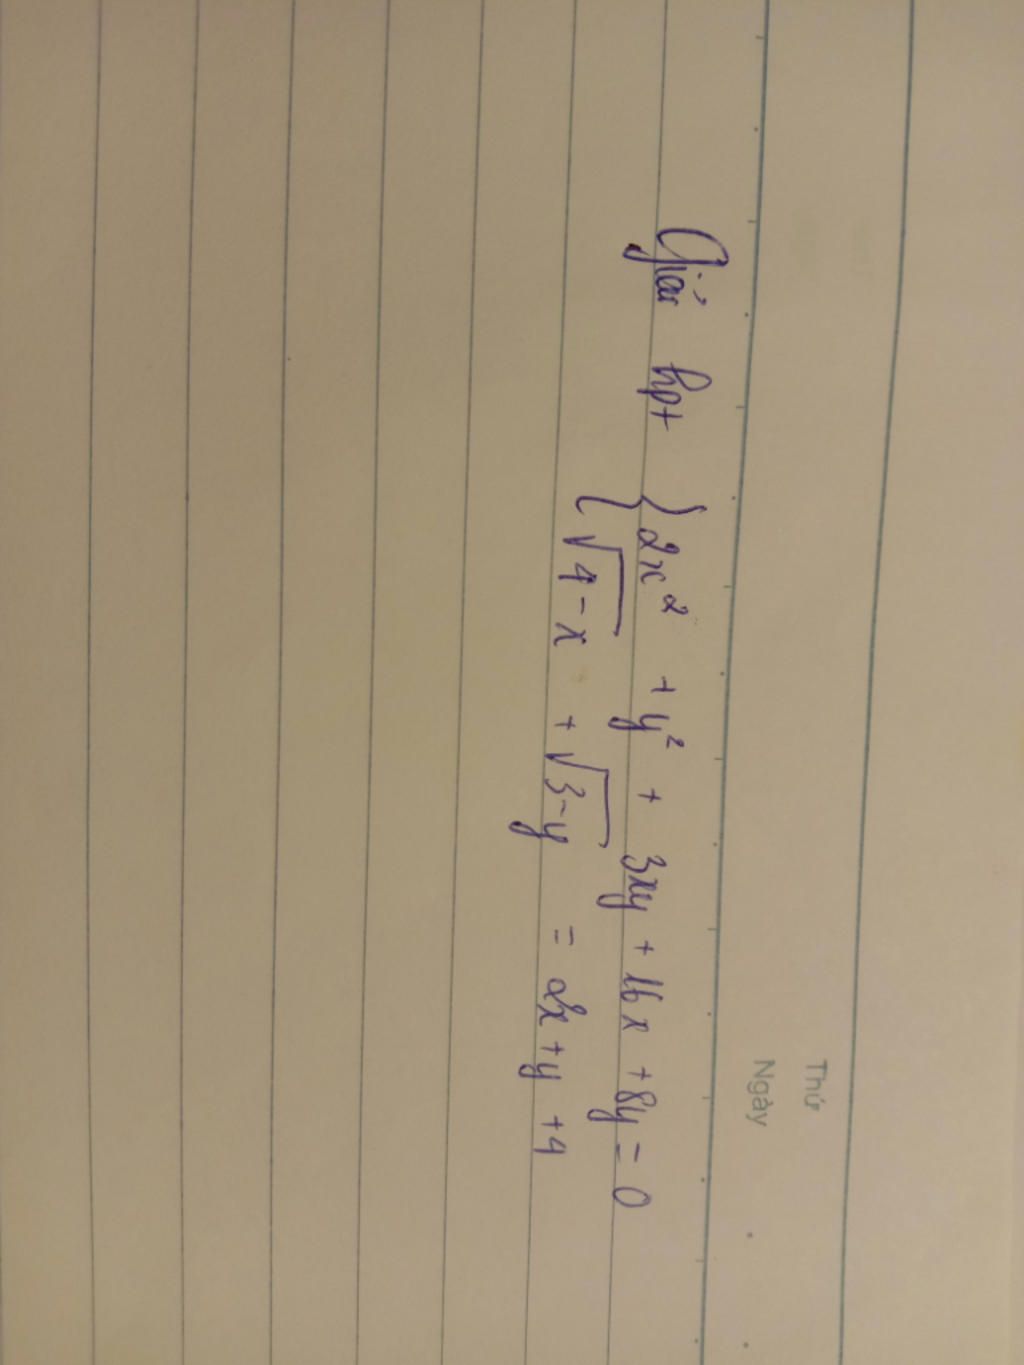 Thứ
Ngày
Giải hpt { 2x² + y² + 3xy + 16x + 8y = 0
{ √4-x + √3-y = 2x + y + 4